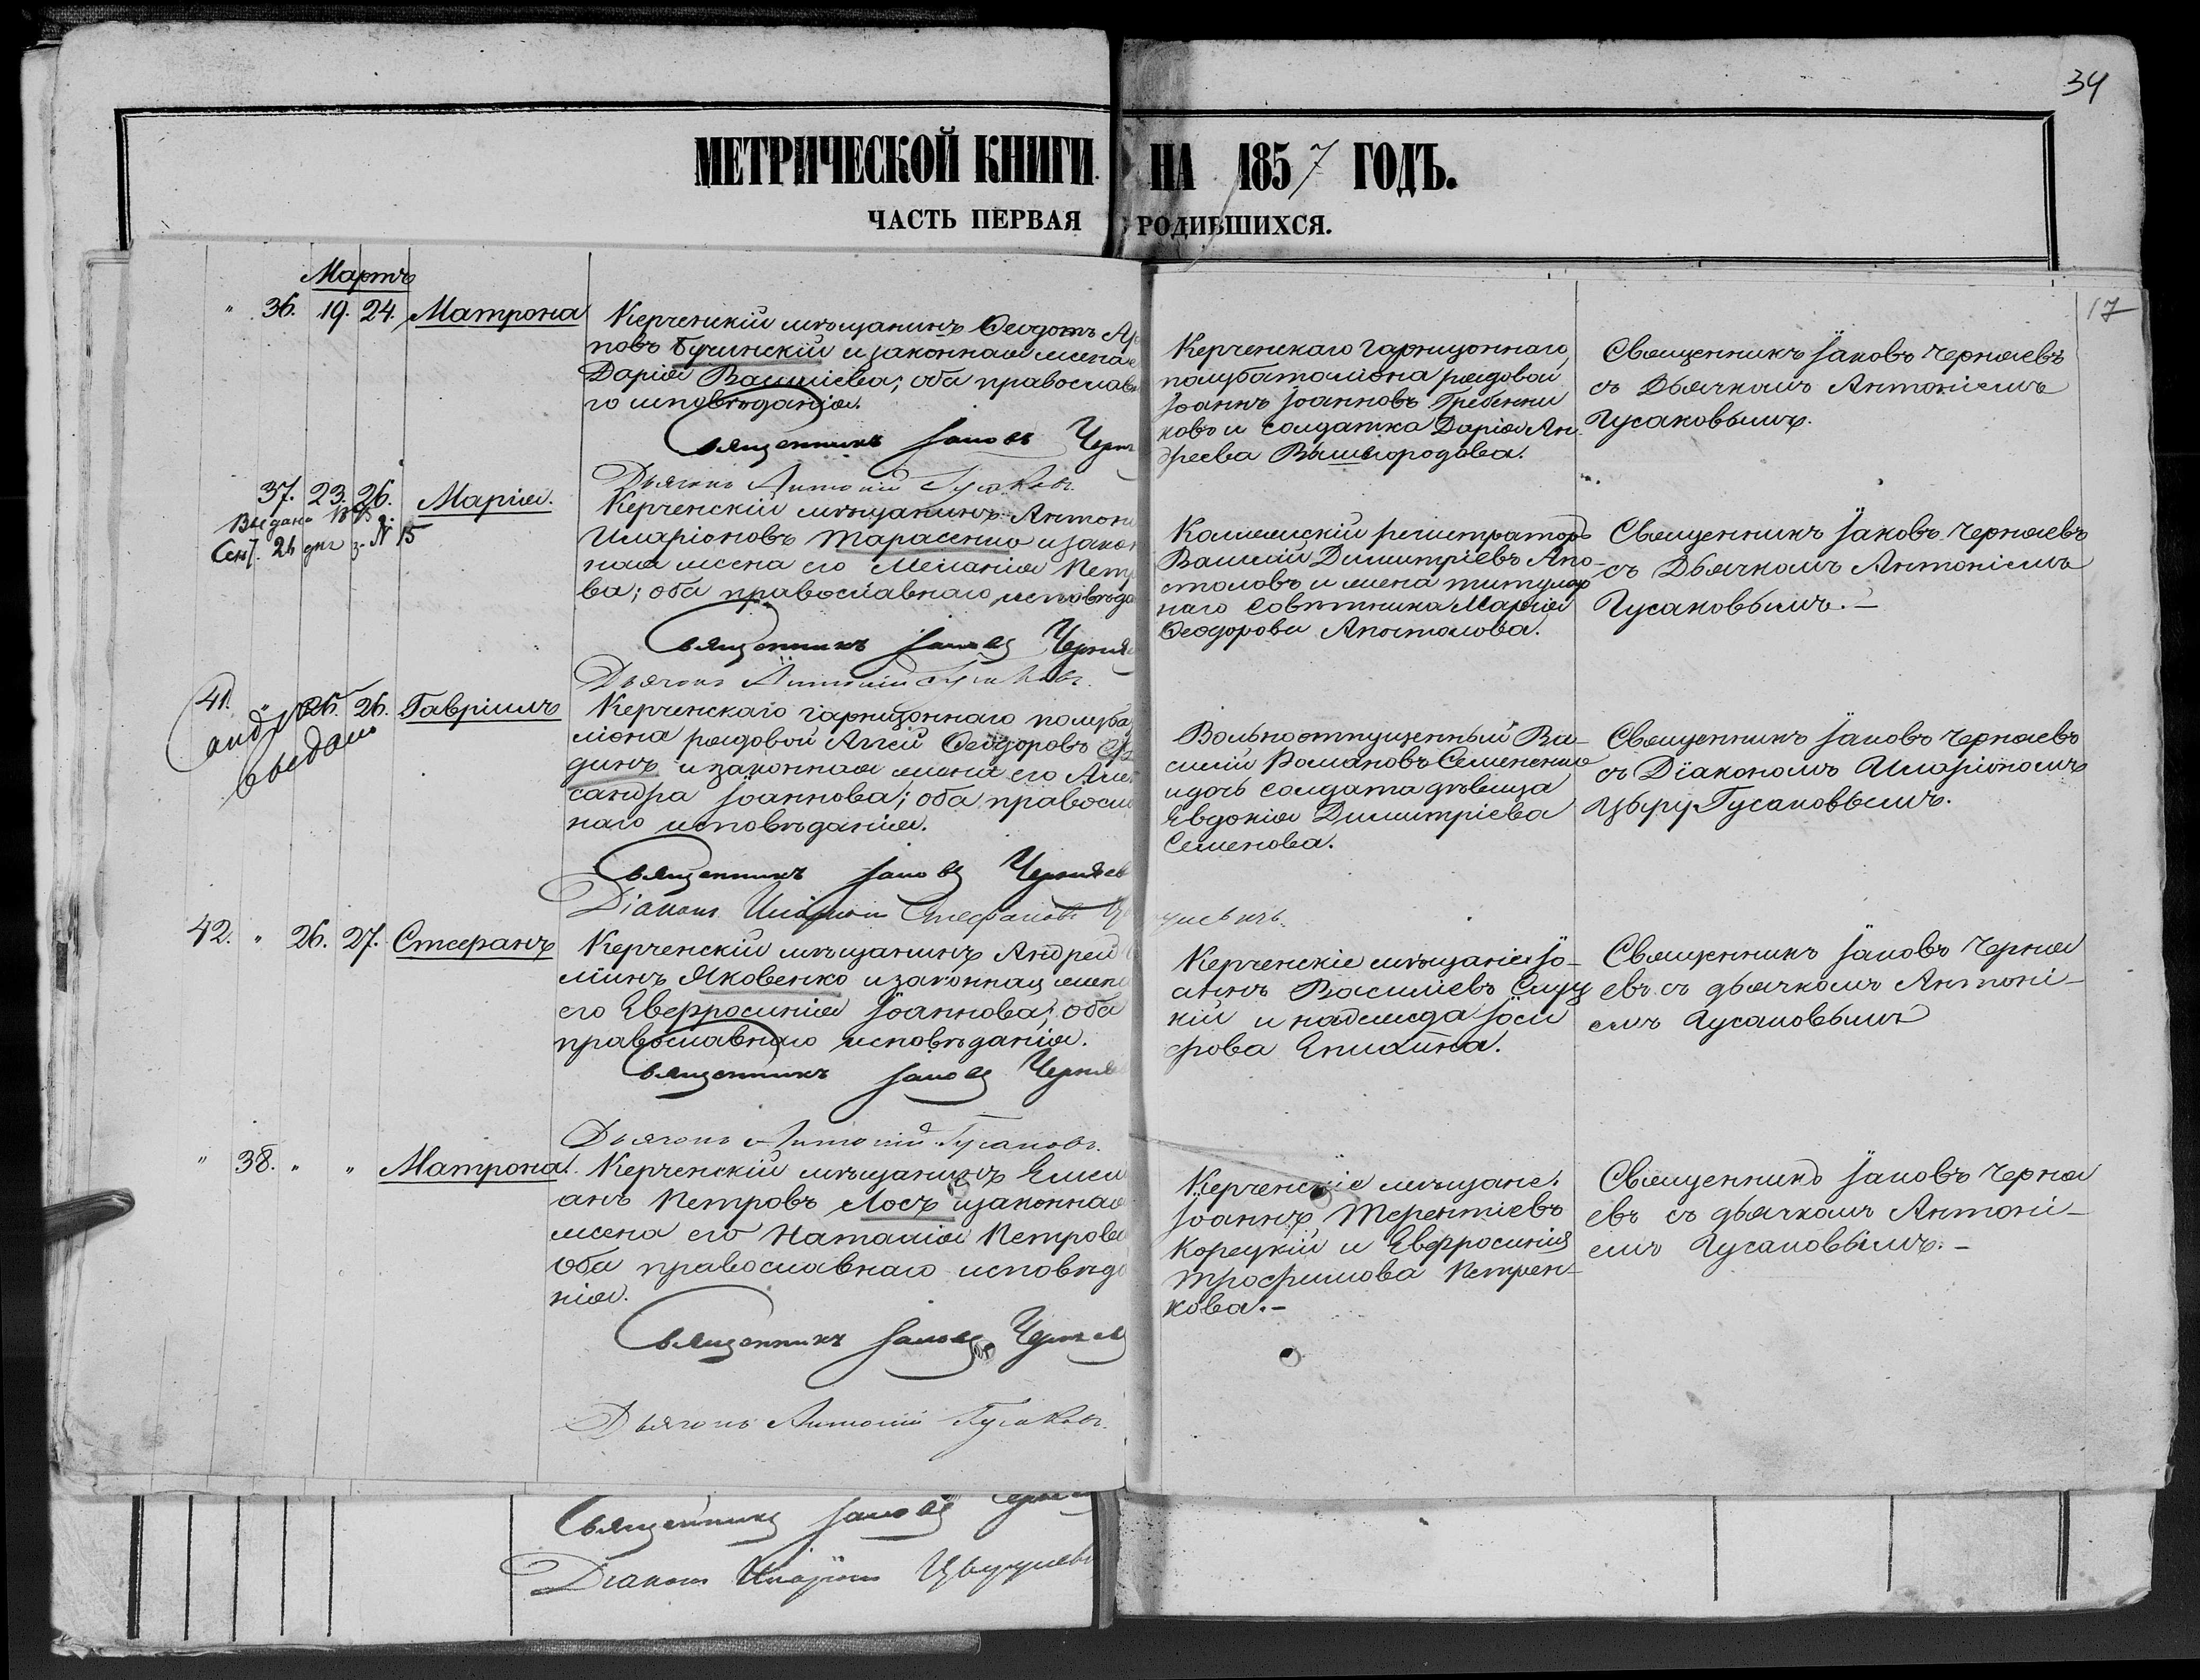 34
МЕТРИЧЕСКОЙ КНИГИ НА 1857 ГОДЪ.
ЧАСТЬ ПЕРВАЯ РОДИВШИХСЯ.
17
Мартъ
" 36. 19. 24. Матрона
Керченскій мѣщанинъ Ѳеодотъ
повъ Бучинскій и законная жена е
Дарія Василіева; оба православ
го исповѣданія.
Священникъ Іаковъ Черн
Дьячокъ Антоній Гусаковъ.
Керченскаго гарнизоннаго
полубаталіона рядовой
Іоаннъ Іоанновъ Гребенни
ковъ и солдатка Дарія Ан
дреева Вышегородова.
Священникъ Іаковъ Черняевъ
съ Дьячкомъ Антоніемъ
Гусаковымъ.
37. 23. 26. Марія.
Выдано
Сент. 26 дня з. N 15
Керченскій мѣщанинъ Антон
Иларіоновъ Тарасенко и закон
ная жена его Меланія Петр
ва; оба православнаго исповѣда
Священникъ Іаковъ Черняе
Дьячокъ Антоній Гусаковъ.
Коллежскій регистраторъ
Василій Димитріевъ Апо-
столовъ и жена титуляр
наго Совѣтника Марія
Ѳеодорова Апостолова.
Священникъ Іаковъ Черняевъ
съ Дьячкомъ Антоніемъ
Гусаковымъ.-
41. " 26. 26. Гавріилъ
выдано
Керченскаго гарнизоннаго полуба
ліона рядовой Алексѣй Ѳеодоровъ
динъ и законная жена его Алек
сандра Іоаннова; оба правосла
наго исповѣданія.
Священникъ Іаковъ Черняев
Діаконъ Иларіонъ Стефановъ
Вольноотпущенный Ва-
силій Романовъ Семененко
и дочь солдата дѣвица
Евдокія Димитріева
Семенова.
Священникъ Іаковъ Черняевъ
съ Діакономъ Иларіономъ
Гусаковымъ.
42. " 26. 27. Стефанъ
Керченскій мѣщанинъ Андрей
минъ Яковенко и законная жена
его Евфросинія Іоаннова; оба
православнаго исповѣданія.
Священникъ Іаковъ Черняе
Дьячокъ Антоній Гусаковъ.
Керченскіе мѣщане: Іо-
аннъ Василіевъ Слуц
кій и Надежда Іоси
фова Епихина.
Священникъ Іаковъ Черня
евъ съ дьячкомъ Антоні-
емъ Гусаковымъ
" 38. " " Матрона.
Керченскій мѣщанинъ Емели
анъ Петровъ Лось и законная
жена его Наталія Петрова
оба православнаго исповѣда
нія.
Священникъ Іаковъ Черняев
Дьячокъ Антоній Гусаковъ.
Керченскіе мѣщане:
Іоаннъ Терентіевъ
Корецкій и Евфросинія
Трофимова Петрен-
кова.-
Священникъ Іаковъ Черня
евъ съ дьячкомъ Антоні-
емъ Гусаковымъ.-
Священникъ Іаковъ
Діаконъ Иларіонъ